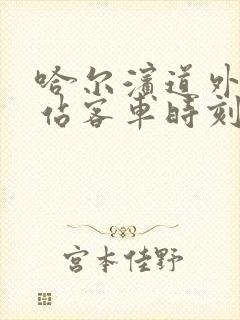 哈尔滨道外
站客車時刻
宮本佳野